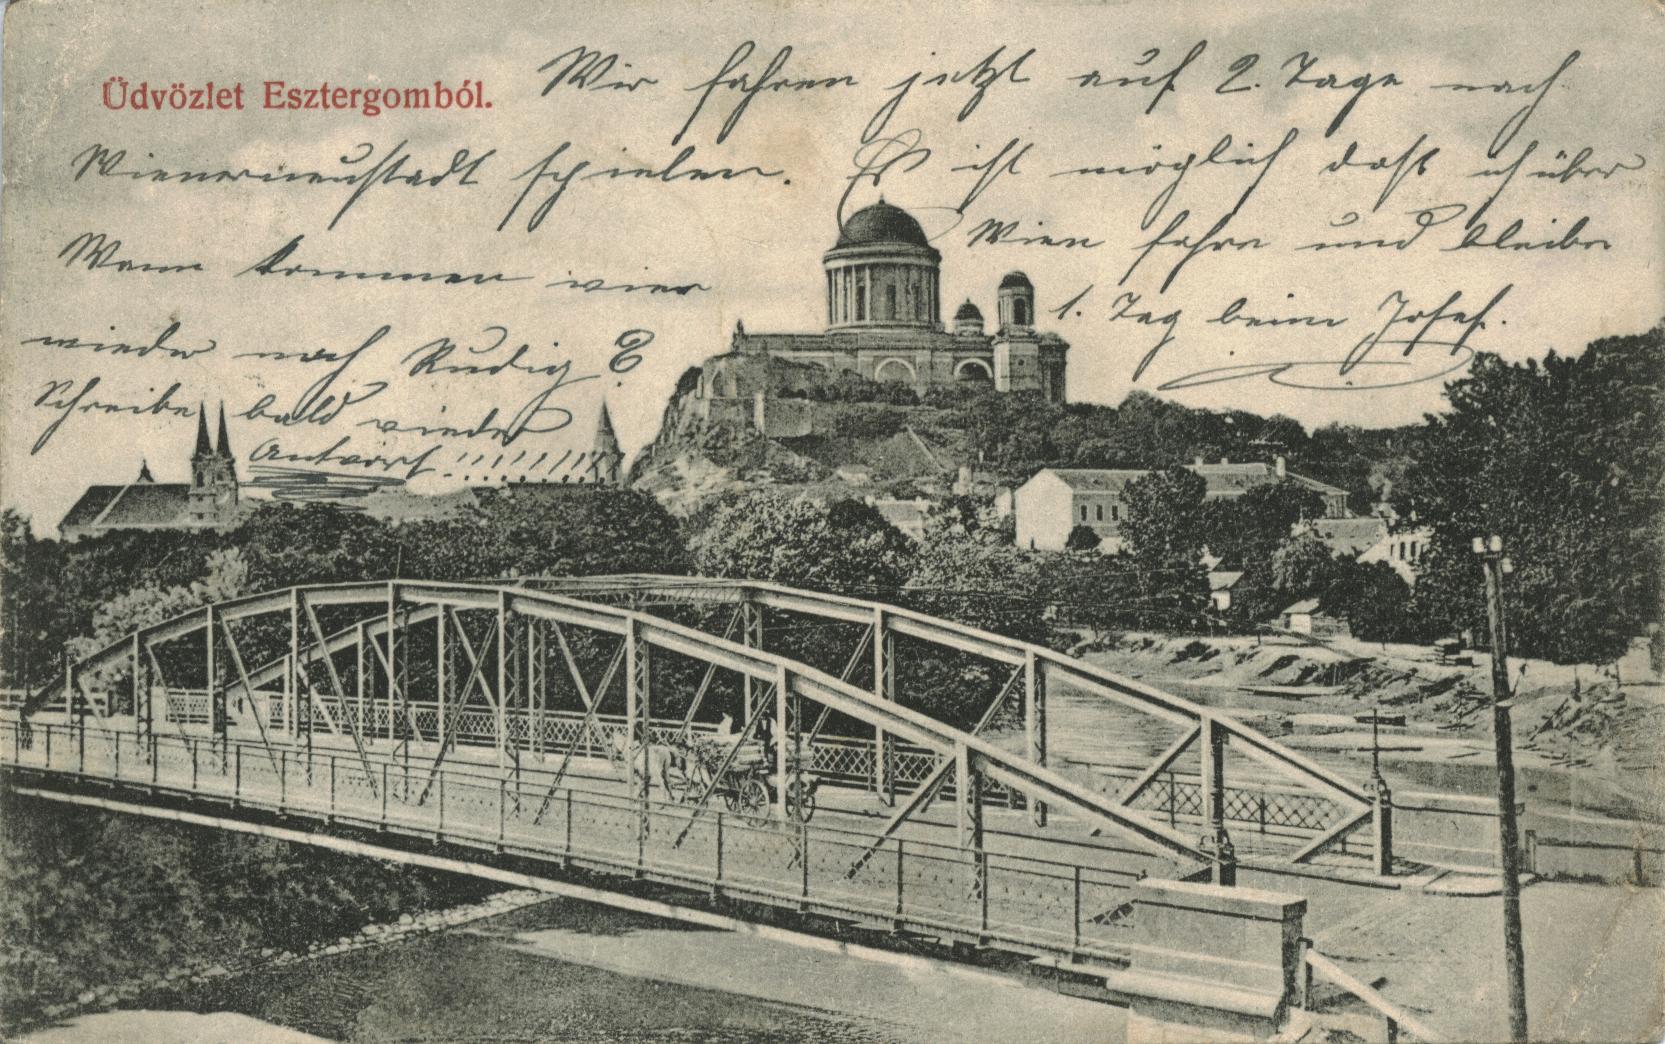 Üdvözlet Esztergomból.
Wir fahren jetzt auf 2. Tage nach
Wienerneustadt spielen. Es ist möglich dass ich über
Wien fahre und bleibe
1. Tag beim Josef.
Wann kommen wier
wieder nach Rudig?
Schreibe bald wieder
Antwort!!!!!!!!!!